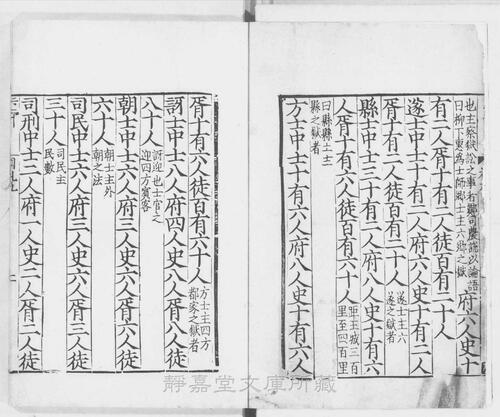 也主察獄訟之事者鄭司農說以論語
曰柳下惠為士師鄉士主六鄉之獄
府六人史十
有二人胥十有二人徒百有二十人
遂士中士十有二人府六人史十有二人
胥十有二人徒百有二十人
遂士主六
遂之獄者
縣士中士三十有二人府八人史十有六
人胥十有六人徒百有六十人
距王城三百
里至四百里
曰縣縣士主
縣之獄者
方士中士十有六人府八人史十有六人
胥十有六人徒百有六十人
方士主四方
都家之獄者
訝士中士八人府四人史八人胥八人徒
八十人
訝迎也士官之
迎四方賓客
朝士中士六人府三人史六人胥六人徒
六十人
朝士主外
朝之法
司民中士六人府三人史六人胥三人徒
三十人
司民主
民數
司刑中士二人府一人史二人胥二人徒
靜嘉堂文庫所藏